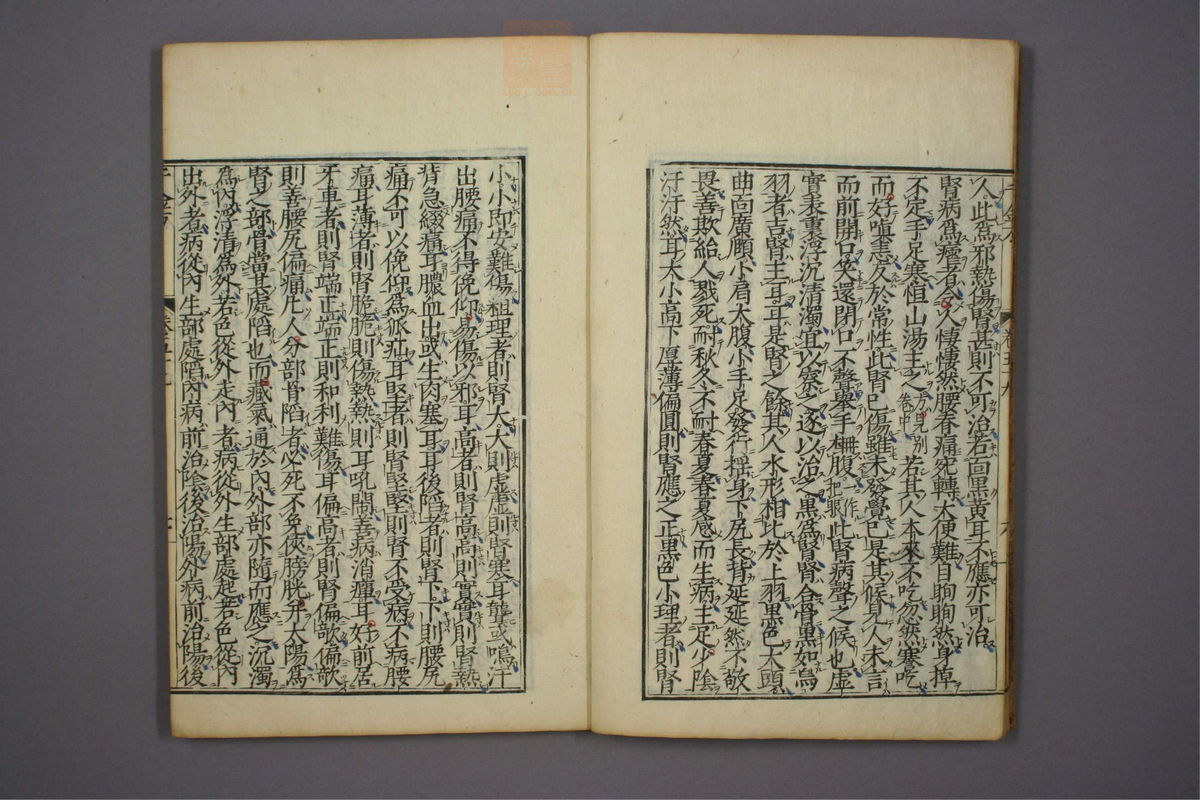 人此為邪熱傷腎甚則不可治若面黒黄耳不應亦可治
腎病為瘧者令人悽悽然腰脊痛宛轉大便難目眴眴然身掉
不定手足寒恒山湯主之方見別卷中若其人本來不吃忽然謇吃
而好嗔恚反於常性此腎已傷雖未發覺已是其候見人未言
而前開口笑還閉口不聲舉手柵腹一作把眼此腎病聲之候也虛
實表裏浮沉清濁宜以察之逐以治之黒為腎腎合骨黒如烏
羽者吉腎主耳耳是腎之餘其人水形相比於上羽黒色大頭
曲面廣頤小肩大腹小手足發行揺身下尻長背延延然不敬
畏善欺紿人戮死耐秋冬不耐春夏春夏感而生病主足少陰
汗汗然耳大小高下厚薄偏圓則腎應之正黒色小理者則腎
小小即安難傷粗理者則腎大大則虛虛則腎寒耳聾或鳴汗
出腰痛不得俛仰易傷以邪耳高者則腎高高則實實則腎熱
背急綴痛耳膿血出或生肉塞耳耳後陷者則腎下下則腰尻
痛不可以俛仰為狐疝耳堅者則腎堅堅則腎不受病不病腰
痛耳薄者則腎脆脆則傷熱熱則耳吼閙善病消癉耳好前居
牙車者則腎端正端正則和利難傷耳偏高者則腎偏欹偏欹
則善腰尻偏痛凡人分部骨陷者必死不免俠膀胱并太陽為
腎之部骨當其處陷也而藏氣通於內外部亦隨而應之沉濁
為內浮清為外若色從外走內者病從外生部處起若色從內
出外者病從內生部處陷內病前治陰後治陽外病前治陽後